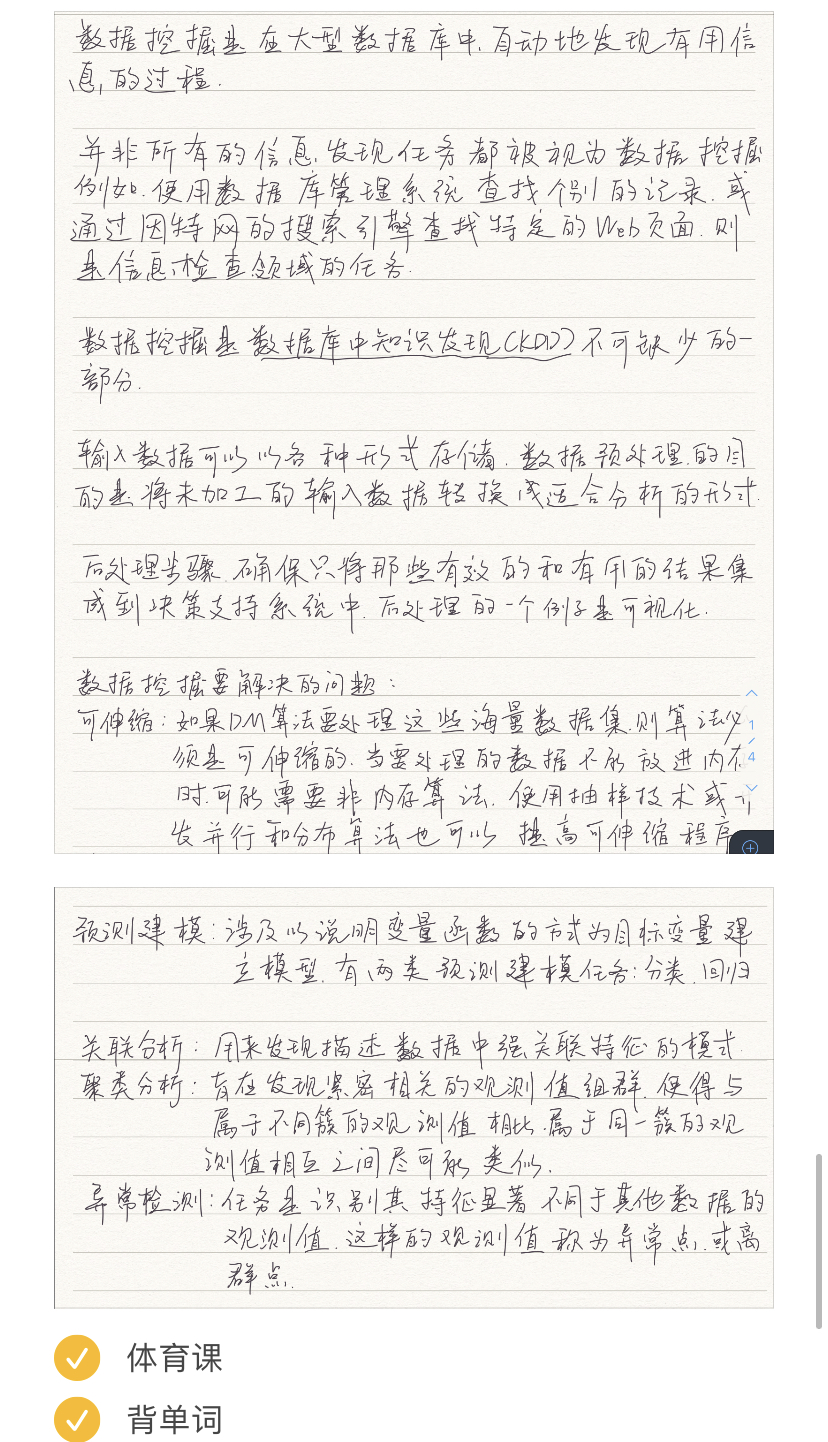 数据挖掘是在大型数据库中,自动地发现有用信
息,的过程.
并非所有的信息,发现任务都被视为数据挖掘
例如.使用数据库管理系统查找个别的记录.或
通过因特网的搜索引擎查找特定的Web页面.则
是信息检查领域的任务.
数据挖掘是数据库中知识发现(KDD)不可缺少的一
部分.
输入数据可以以各种形式存储.数据预处理.的目
的是将未加工的输入数据转换成适合分析的形式.
后处理步骤.确保只将那些有效的和有用的结果集
成到决策支持系统中.后处理的一个例子是可视化.
数据挖掘要解决的问题:
可伸缩:如果DM算法要处理这些海量数据集.则算法必
须是可伸缩的.当要处理的数据不能放进内存
时.可能需要非内存算法.使用抽样技术或
发并行和分布算法也可以提高可伸缩程序
1
/
4
预测建模:涉及以说明变量函数的方式为目标变量建
立模型.有两类预测建模任务:分类.回归
关联分析:用来发现描述数据中强关联特征的模式
聚类分析:旨在发现紧密相关的观测值组群.使得与
属于不同簇的观测值相比.属于同一簇的观
测值相互之间尽可能类似.
异常检测:任务是识别其特征显著不同于其他数据的
观测值.这样的观测值称为异常点.或离
群点.
体育课
背单词